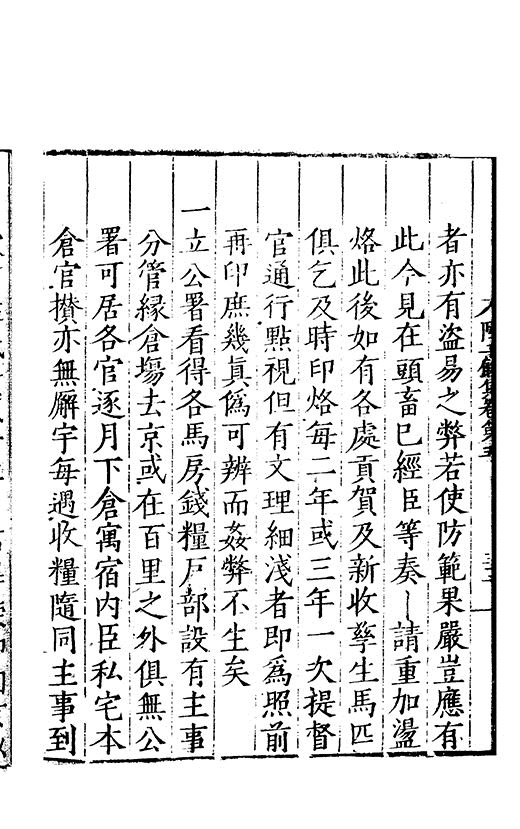 者亦有盜易之弊若使防範果嚴豈應有
此今見在頭畜已經臣等奏請重加盪
烙此後如有各處貢賀及新收孳生馬匹
俱乞及時印烙每二年或三年一次提督
官通行點視但有文理細淺者即爲照前
再印庶幾眞僞可辨而姦弊不生矣
一立公署看得各馬房錢糧戶部設有主事
分管緣倉塲去京或在百里之外俱無公
署可居各官逐月下倉寓宿内臣私宅本
倉官攅亦無廨宇每遇收糧隨同主事到